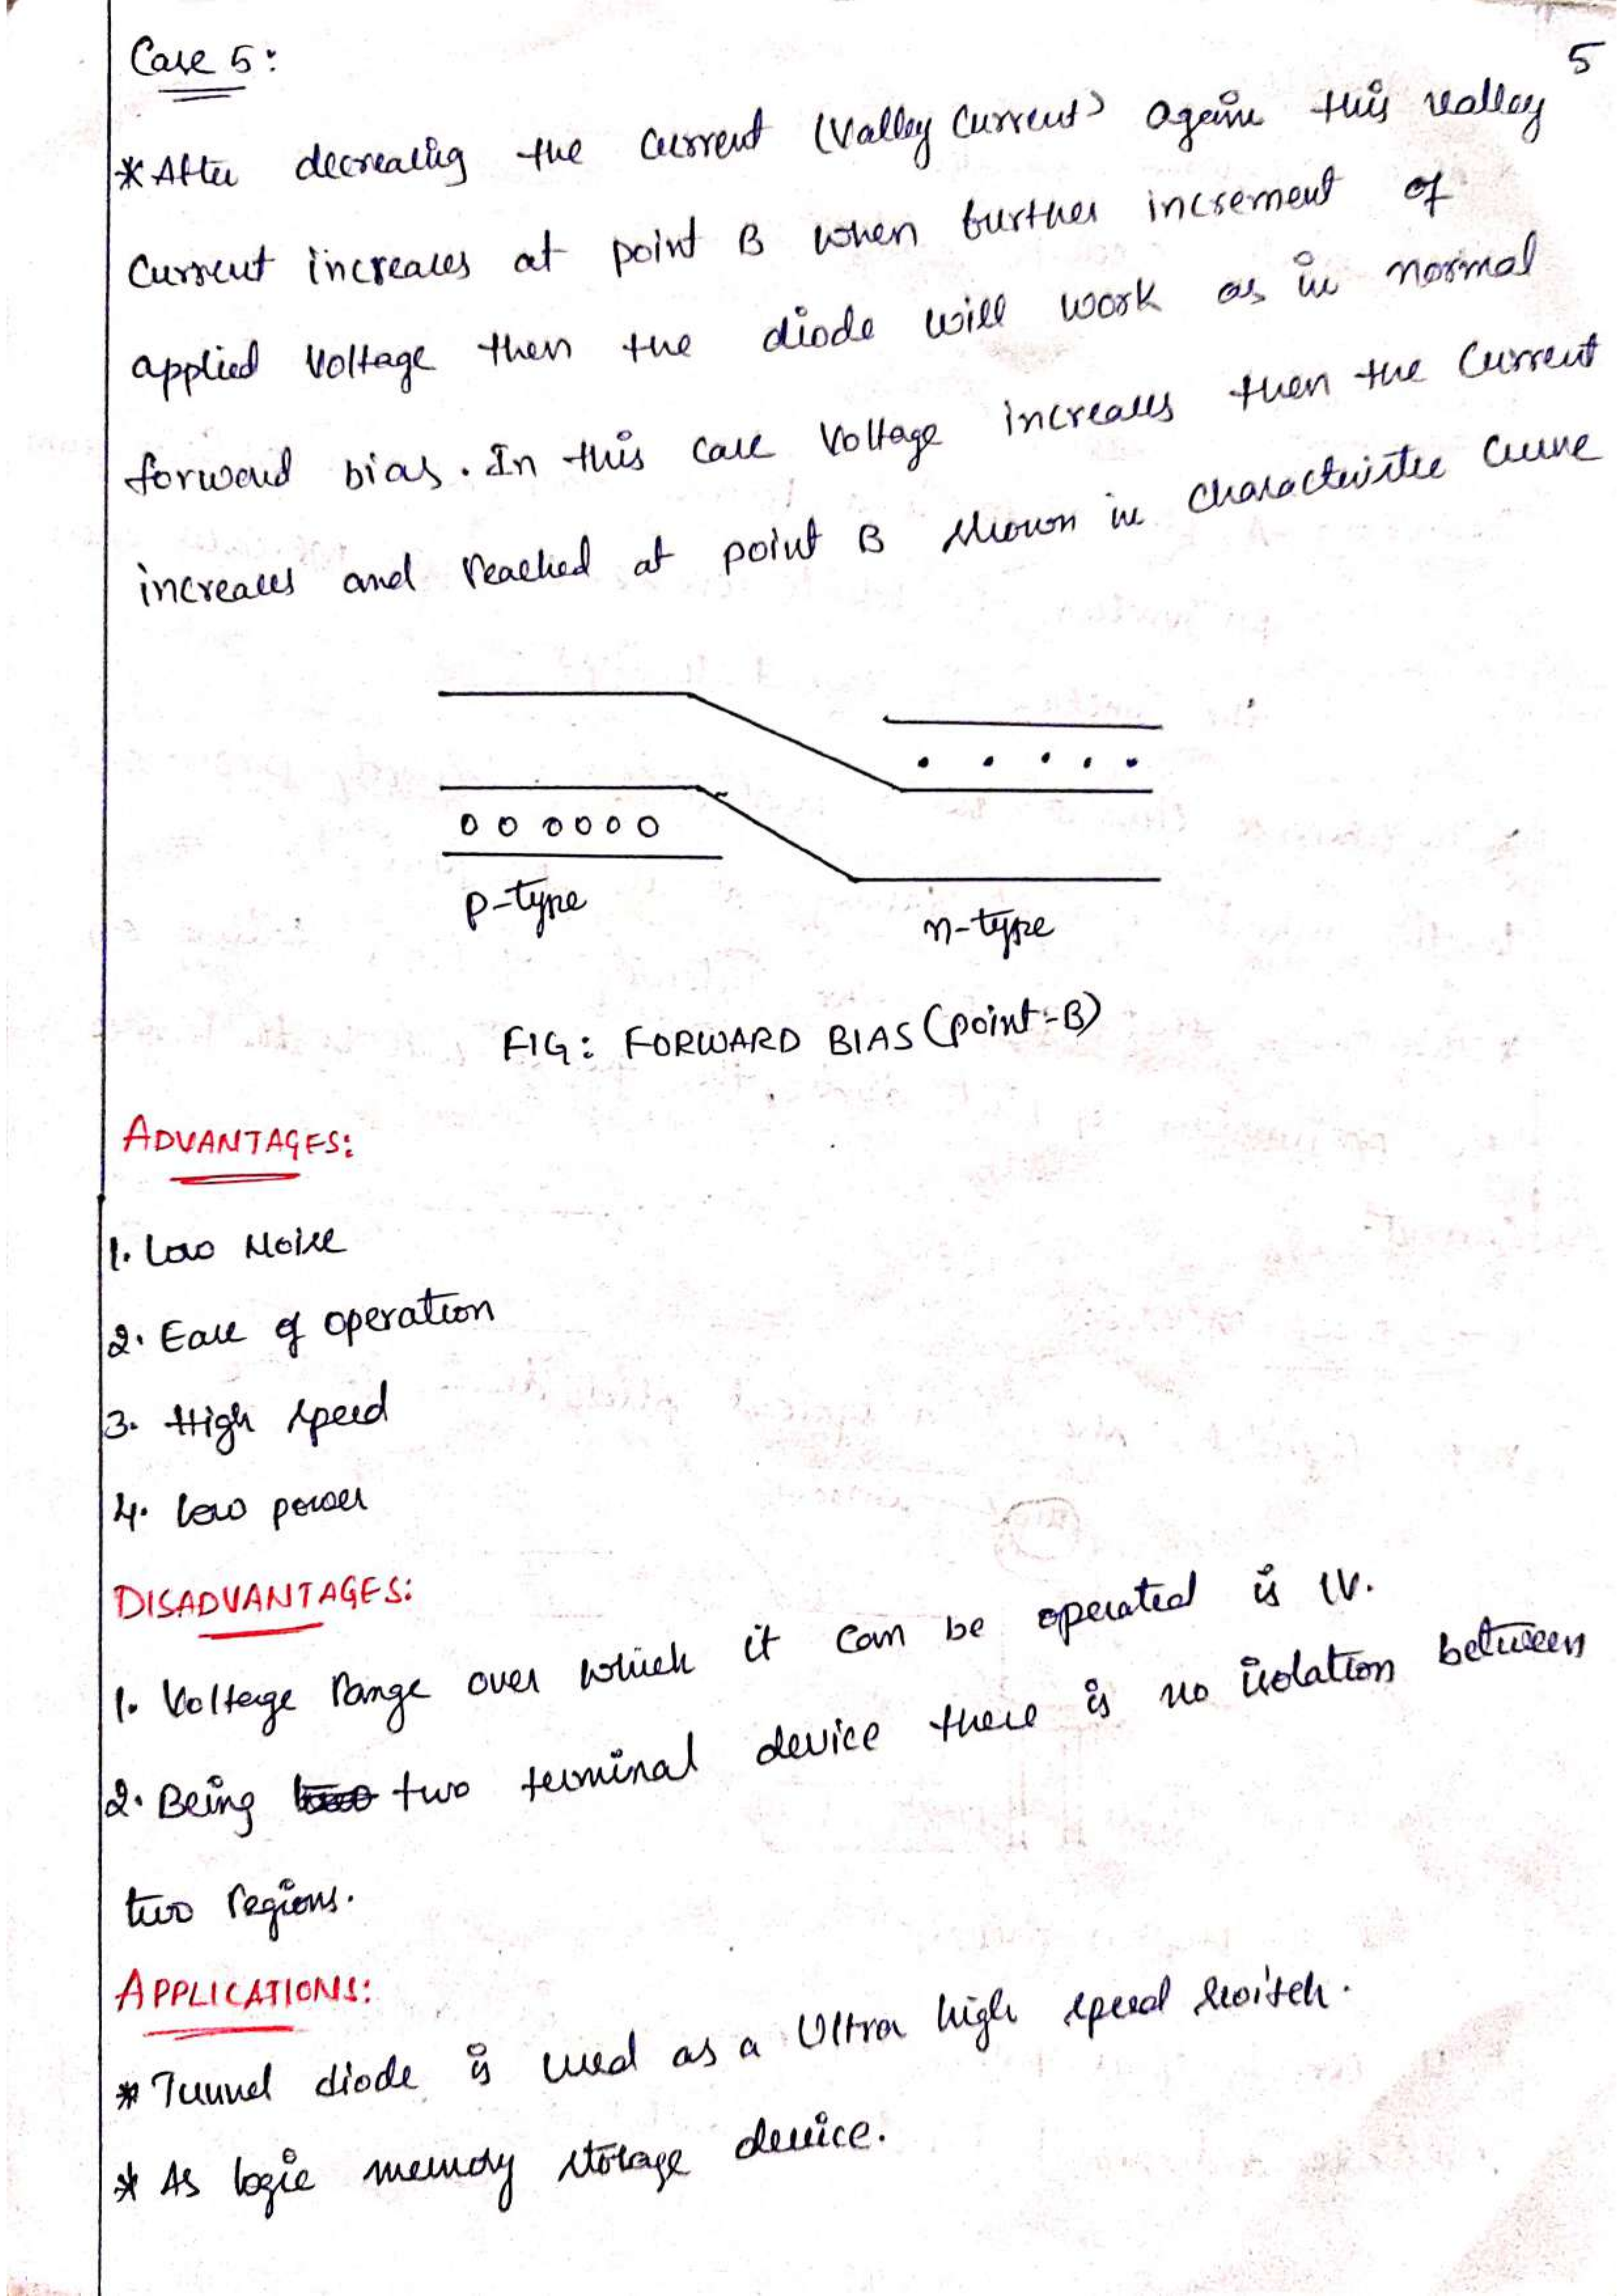 5
Case 5:
* After decreasing the current (Valley Current) again this valley
Current increases at point B when further increment of
applied Voltage then the diode will work as in normal
forward bias. In this case Voltage increases then the Current
increases and reached at point B shown in characteristic curve
p-type
n-type
FIG: FORWARD BIAS (point-B)
ADVANTAGES:
1. Low Noise
2. Ease of operation
3. High speed
4. low power
DISADVANTAGES:
1. Voltage range over which it can be operated is 1V.
2. Being two terminal device there is no isolation between
two regions.
APPLICATIONS:
* Tunnel diode is used as a Ultra high speed switch.
* As logic memory storage device.